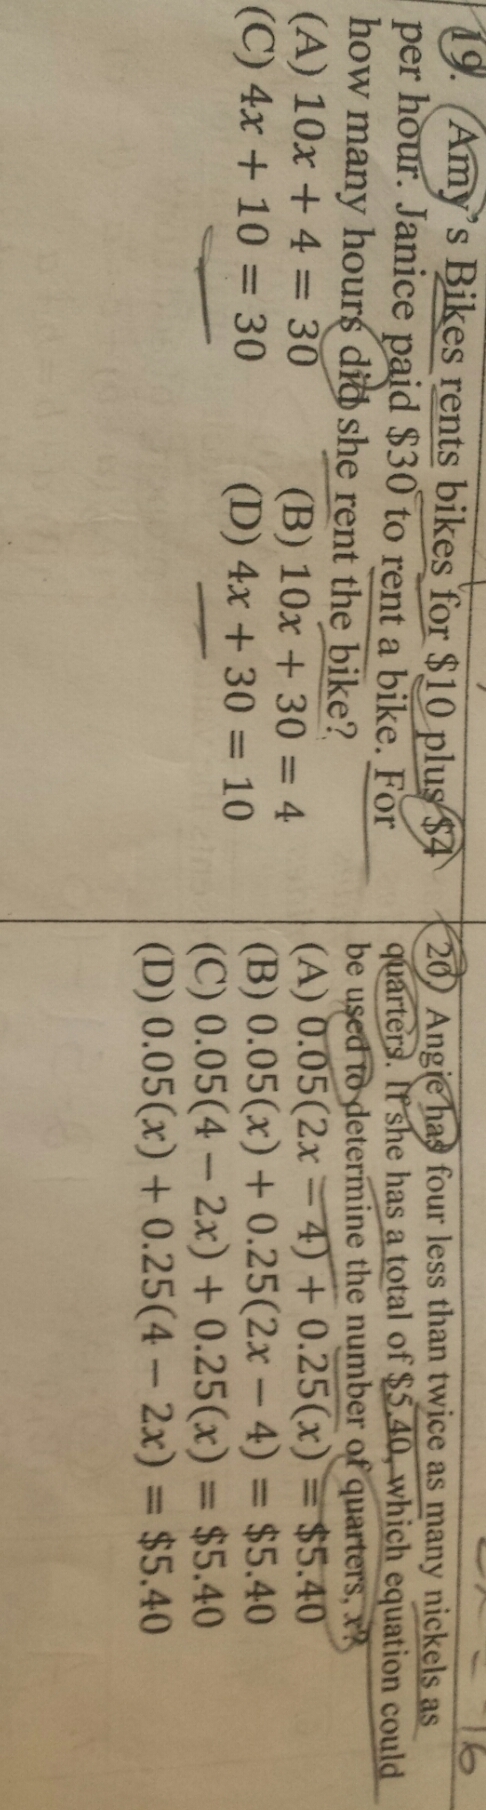 19. Amy's Bikes rents bikes for $10 plus $4
per hour. Janice paid $30 to rent a bike. For
how many hours did she rent the bike?
(A) 10x + 4 = 30 (B) 10x + 30 = 4
(C) 4x + 10 = 30 (D) 4x + 30 = 10
20) Angie has four less than twice as many nickels as
quarters. If she has a total of $5.40, which equation could
be used to determine the number of quarters, x?
(A) 0.05(2x − 4) + 0.25(x) = $5.40
(B) 0.05(x) + 0.25(2x − 4) = $5.40
(C) 0.05(4 − 2x) + 0.25(x) = $5.40
(D) 0.05(x) + 0.25(4 − 2x) = $5.40